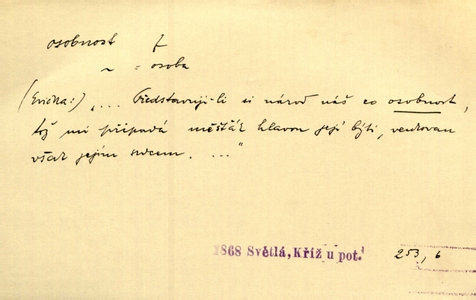 osobnost f
~ = osoba
(Evička:) „... Představuji-li si národ náš co osobnost,
tož mi připadá měšťák hlavou její býti, venkovan
však jejím srdcem. ..."
1868 Světlá, Kříž u pot. 253, 6